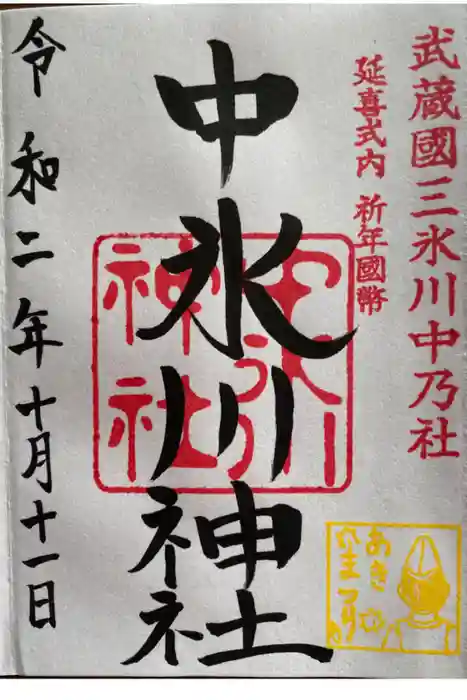 武蔵國三氷川中乃社
延喜式内 祈年國幣
中氷川神社
中氷川
神社
令和二年十月十一日
あき
の
まつり